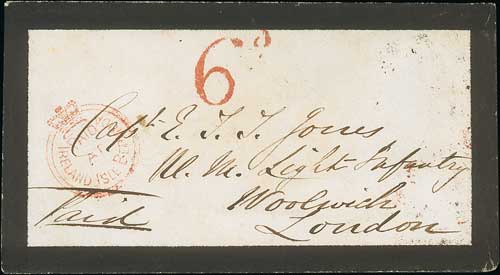 6d
IRELAND ISLE
Capt. E. T. I. Jones
R. M. Light Infantry
Woolwich
London
Paid